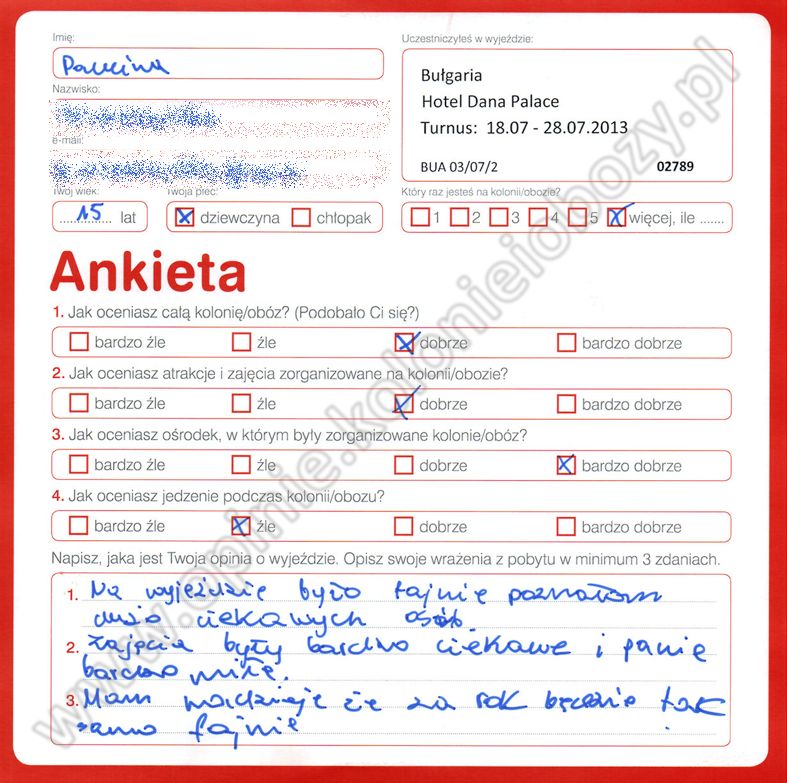 Imię:
Uczestniczyłeś w wyjeździe:
Paulina
Bułgaria
Hotel Dana Palace
Turnus: 18.07 - 28.07.2013
BUA 03/07/2 02789
Nazwisko:
e-mail:
Twój wiek:
Twoja płeć:
Który raz jesteś na kolonii/obozie?
15 lat
dziewczyna chłopak
1 2 3 4 5 więcej, ile .......
Ankieta
1. Jak oceniasz całą kolonię/obóz? (Podobało Ci się?)
bardzo źle źle dobrze bardzo dobrze
2. Jak oceniasz atrakcje i zajęcia zorganizowane na kolonii/obozie?
bardzo źle źle dobrze bardzo dobrze
3. Jak oceniasz ośrodek, w którym były zorganizowane kolonie/obóz?
bardzo źle źle dobrze bardzo dobrze
4. Jak oceniasz jedzenie podczas kolonii/obozu?
bardzo źle źle dobrze bardzo dobrze
Napisz, jaka jest Twoja opinia o wyjeździe. Opisz swoje wrażenia z pobytu w minimum 3 zdaniach.
1. Na wyjeździe było fajnie poznałam
dużo ciekawych osób
2. Zajęcia były bardzo ciekawe i panie
bardzo miłe.
3. Mam nadzieje że za rok będzie tak
samo fajnie
www.opinie.kolonieiobozy.pl